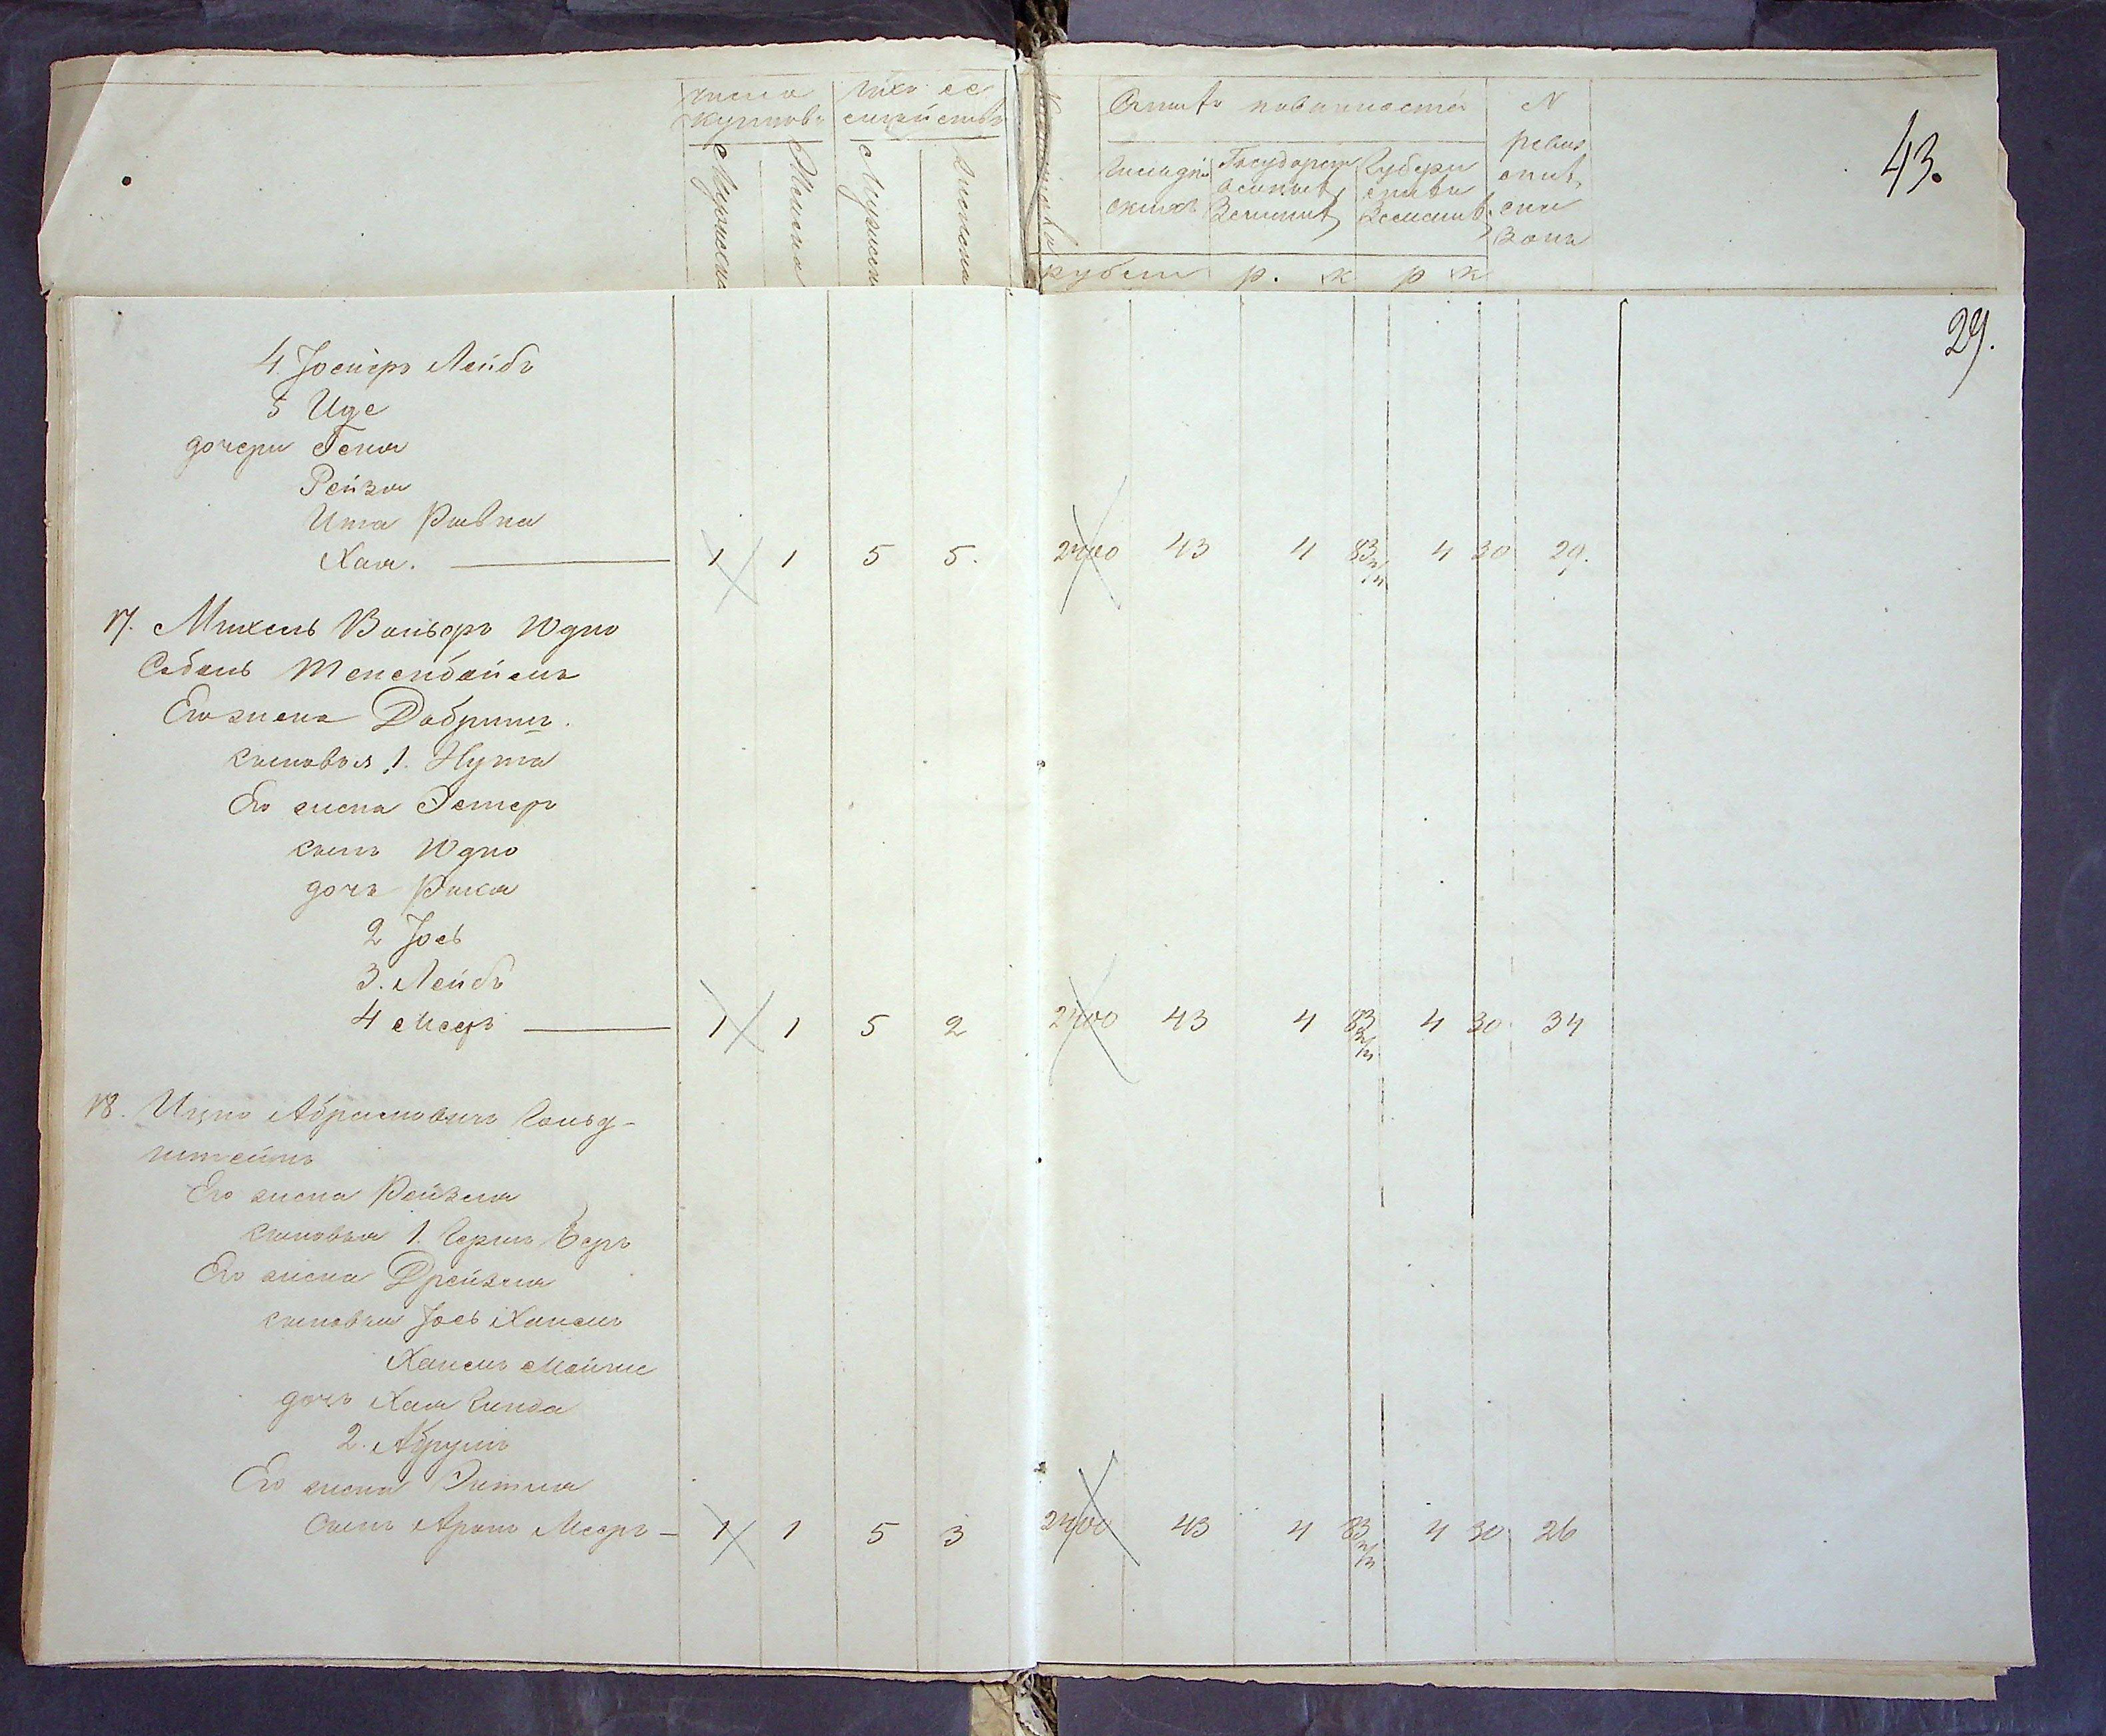 число купцовъ
число ее семействъ
Мужеска
Женска
Мужеск
Женска
Окладъ повинностей
N ревиз
Гильдій скихъ
Государст венныхъ Земскихъ
Губерн скихъ Земскихъ
рубли р. к р к
43.
29.
4. Іосифъ Лейбъ
5 Иде
дочери Геня
Рейза
Ита Ривка
Хая. 1 1 5 5. 2400 43 4 83 4 30 29.
17. Михель Вольфъ Юдко
Тененбаймъ
Его жена Добрышъ.
сыновья 1. Нута
Его жена Эстеръ
сынъ Юдко
дочь Рыка
2 Іось
3. Лейбъ
4 Мееръ 1 1 5 2 2400 43 4 83 4 30 34
18. Ицко Абрамовичъ Гольд-
штейнъ
Его жена Рейзля
сыновья 1. Гершъ Беръ
Его жена Дрейзля
сыновья Іось Ханемъ
Ханемъ Мойше
дочь Хая Гинда
2. Абрумъ
Его жена Этля
Сынъ Аронъ Мееръ - 1 1 5 3 2400 43 4 83 4 30 26